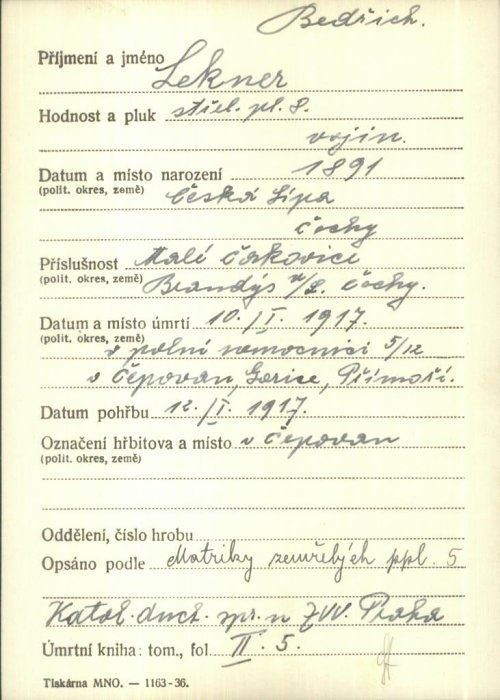 Bedřich.
Příjmení a jméno Lekner
Hodnost a pluk střel. pl. 8.
vojín.
Datum a místo narození 1891
(polit. okres, země) Česká Lípa
Čechy
Příslušnost Malé Čakovice
(polit. okres, země) Brandýs n/L. Čechy.
Datum a místo úmrtí 10./I. 1917.
(polit. okres, země) v polní nemocnici 5/12
v Čepovan, Gorice, Přímoří.
Datum pohřbu 12./I. 1917.
Označení hřbitova a místo v Čepovan
(polit. okres, země)
Oddělení, číslo hrobu
Opsáno podle Matriky zemřelých ppl. 5
Katol. duch. spr. u ZVV. Praha
Úmrtní kniha: tom., fol. II. 5.
Tiskárna MNO. — 1163-36.